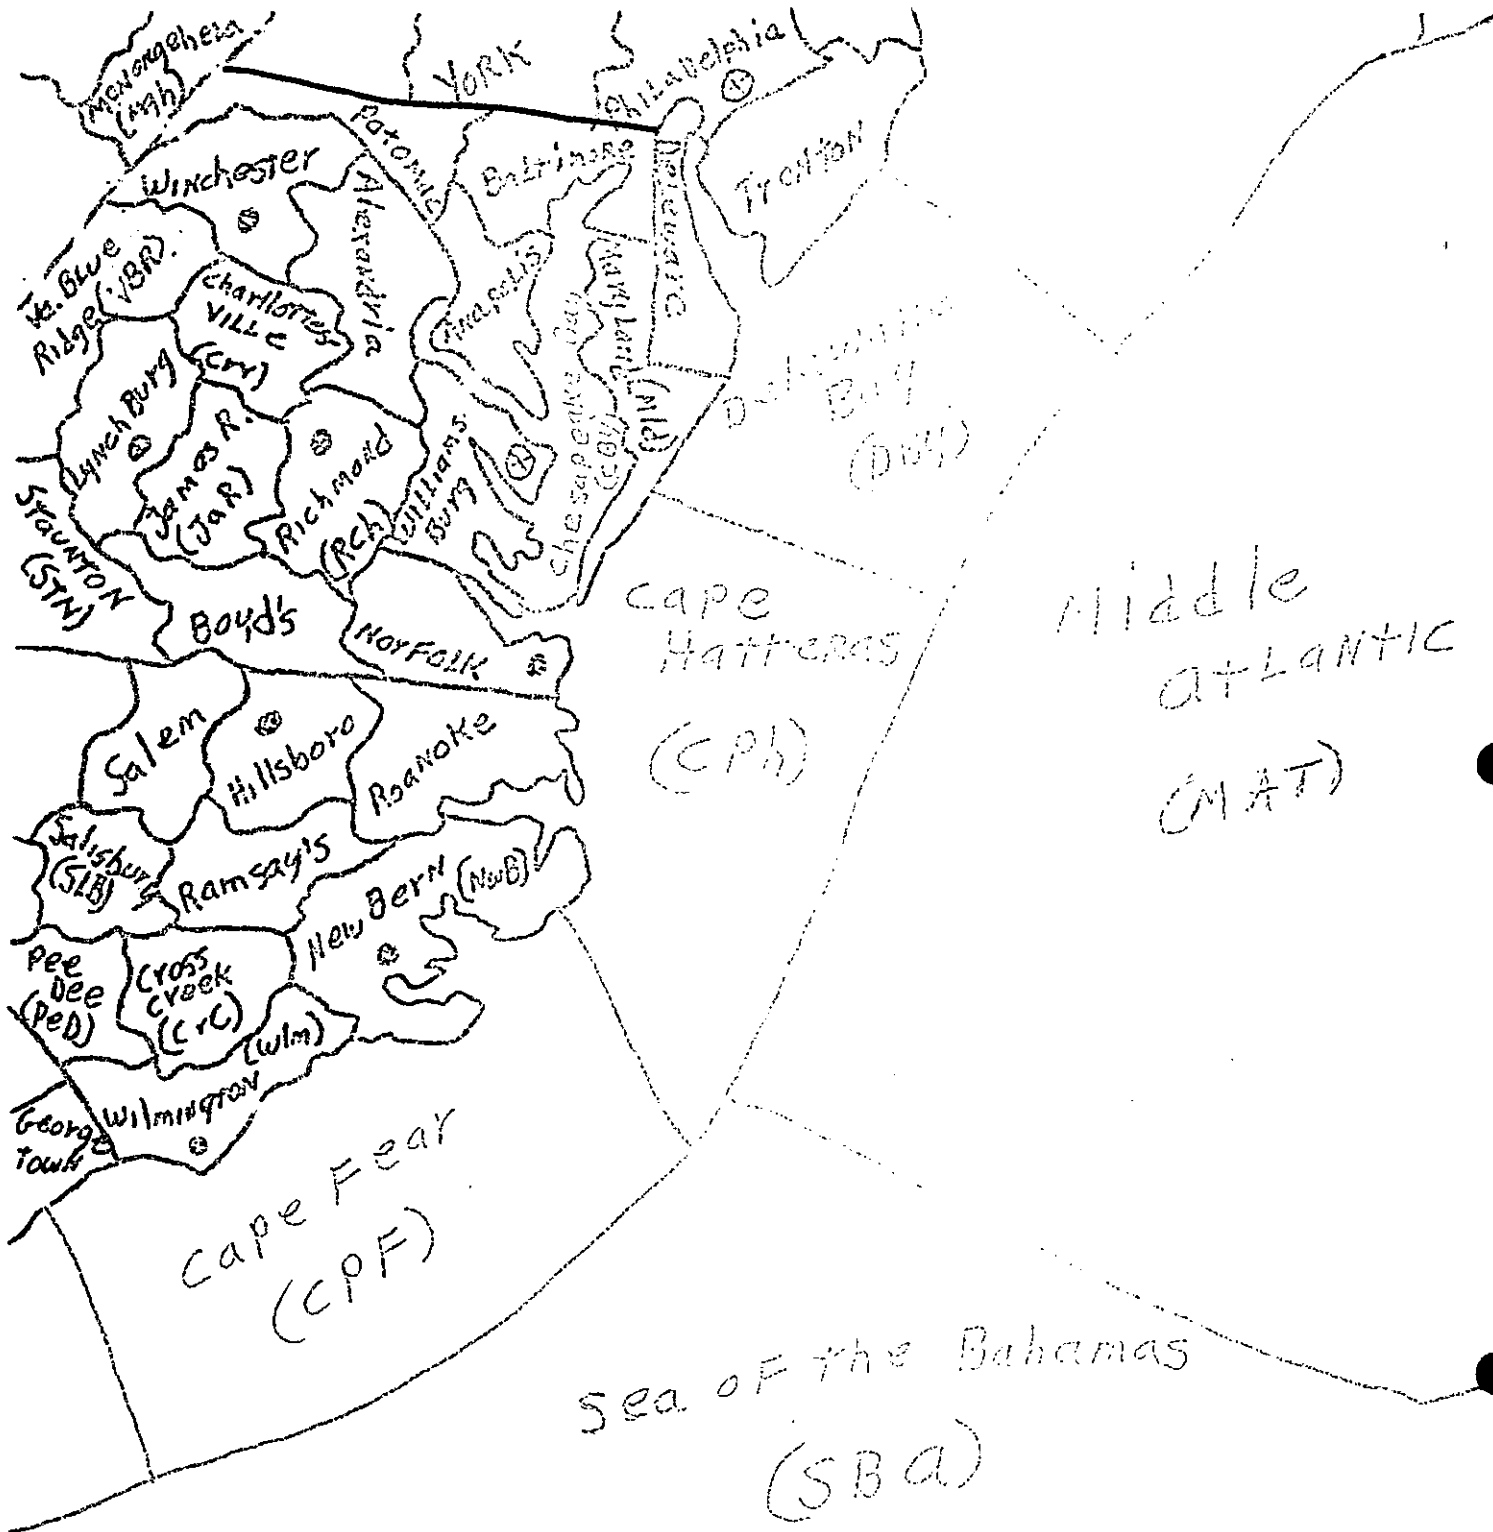 Monongehela
(Mgh)
YORK
Philadelphia
Potomac
Winchester
Baltimore
Trenton
Alexandria
Deleware
Va. BLUE
Ridge (VBR)
Charllottes
VILLE
(Crr)
Anapolis
MaryLand (Mld)
Chesapeake Bay
(hBC)
Bay
(DWY)
LynchBurg
James R.
(JaR)
Richmond
(RCh)
Williams
Burg
STAUNTON
(STN)
Boyd's
NorFOLK
Cape
HatteRAS
(CPh)
Middle
atLANTIC
(MAT)
Salem
Hillsboro
Roanoke
Salisbury
(SLB)
Ramsay's
New Bern (NwB)
Pee
Dee
(PeD)
Cross
Creek
(CrC)
Wilmington (Wlm)
George
Town
Cape Fear
(CPF)
Sea oF The Bahamas
(SBa)